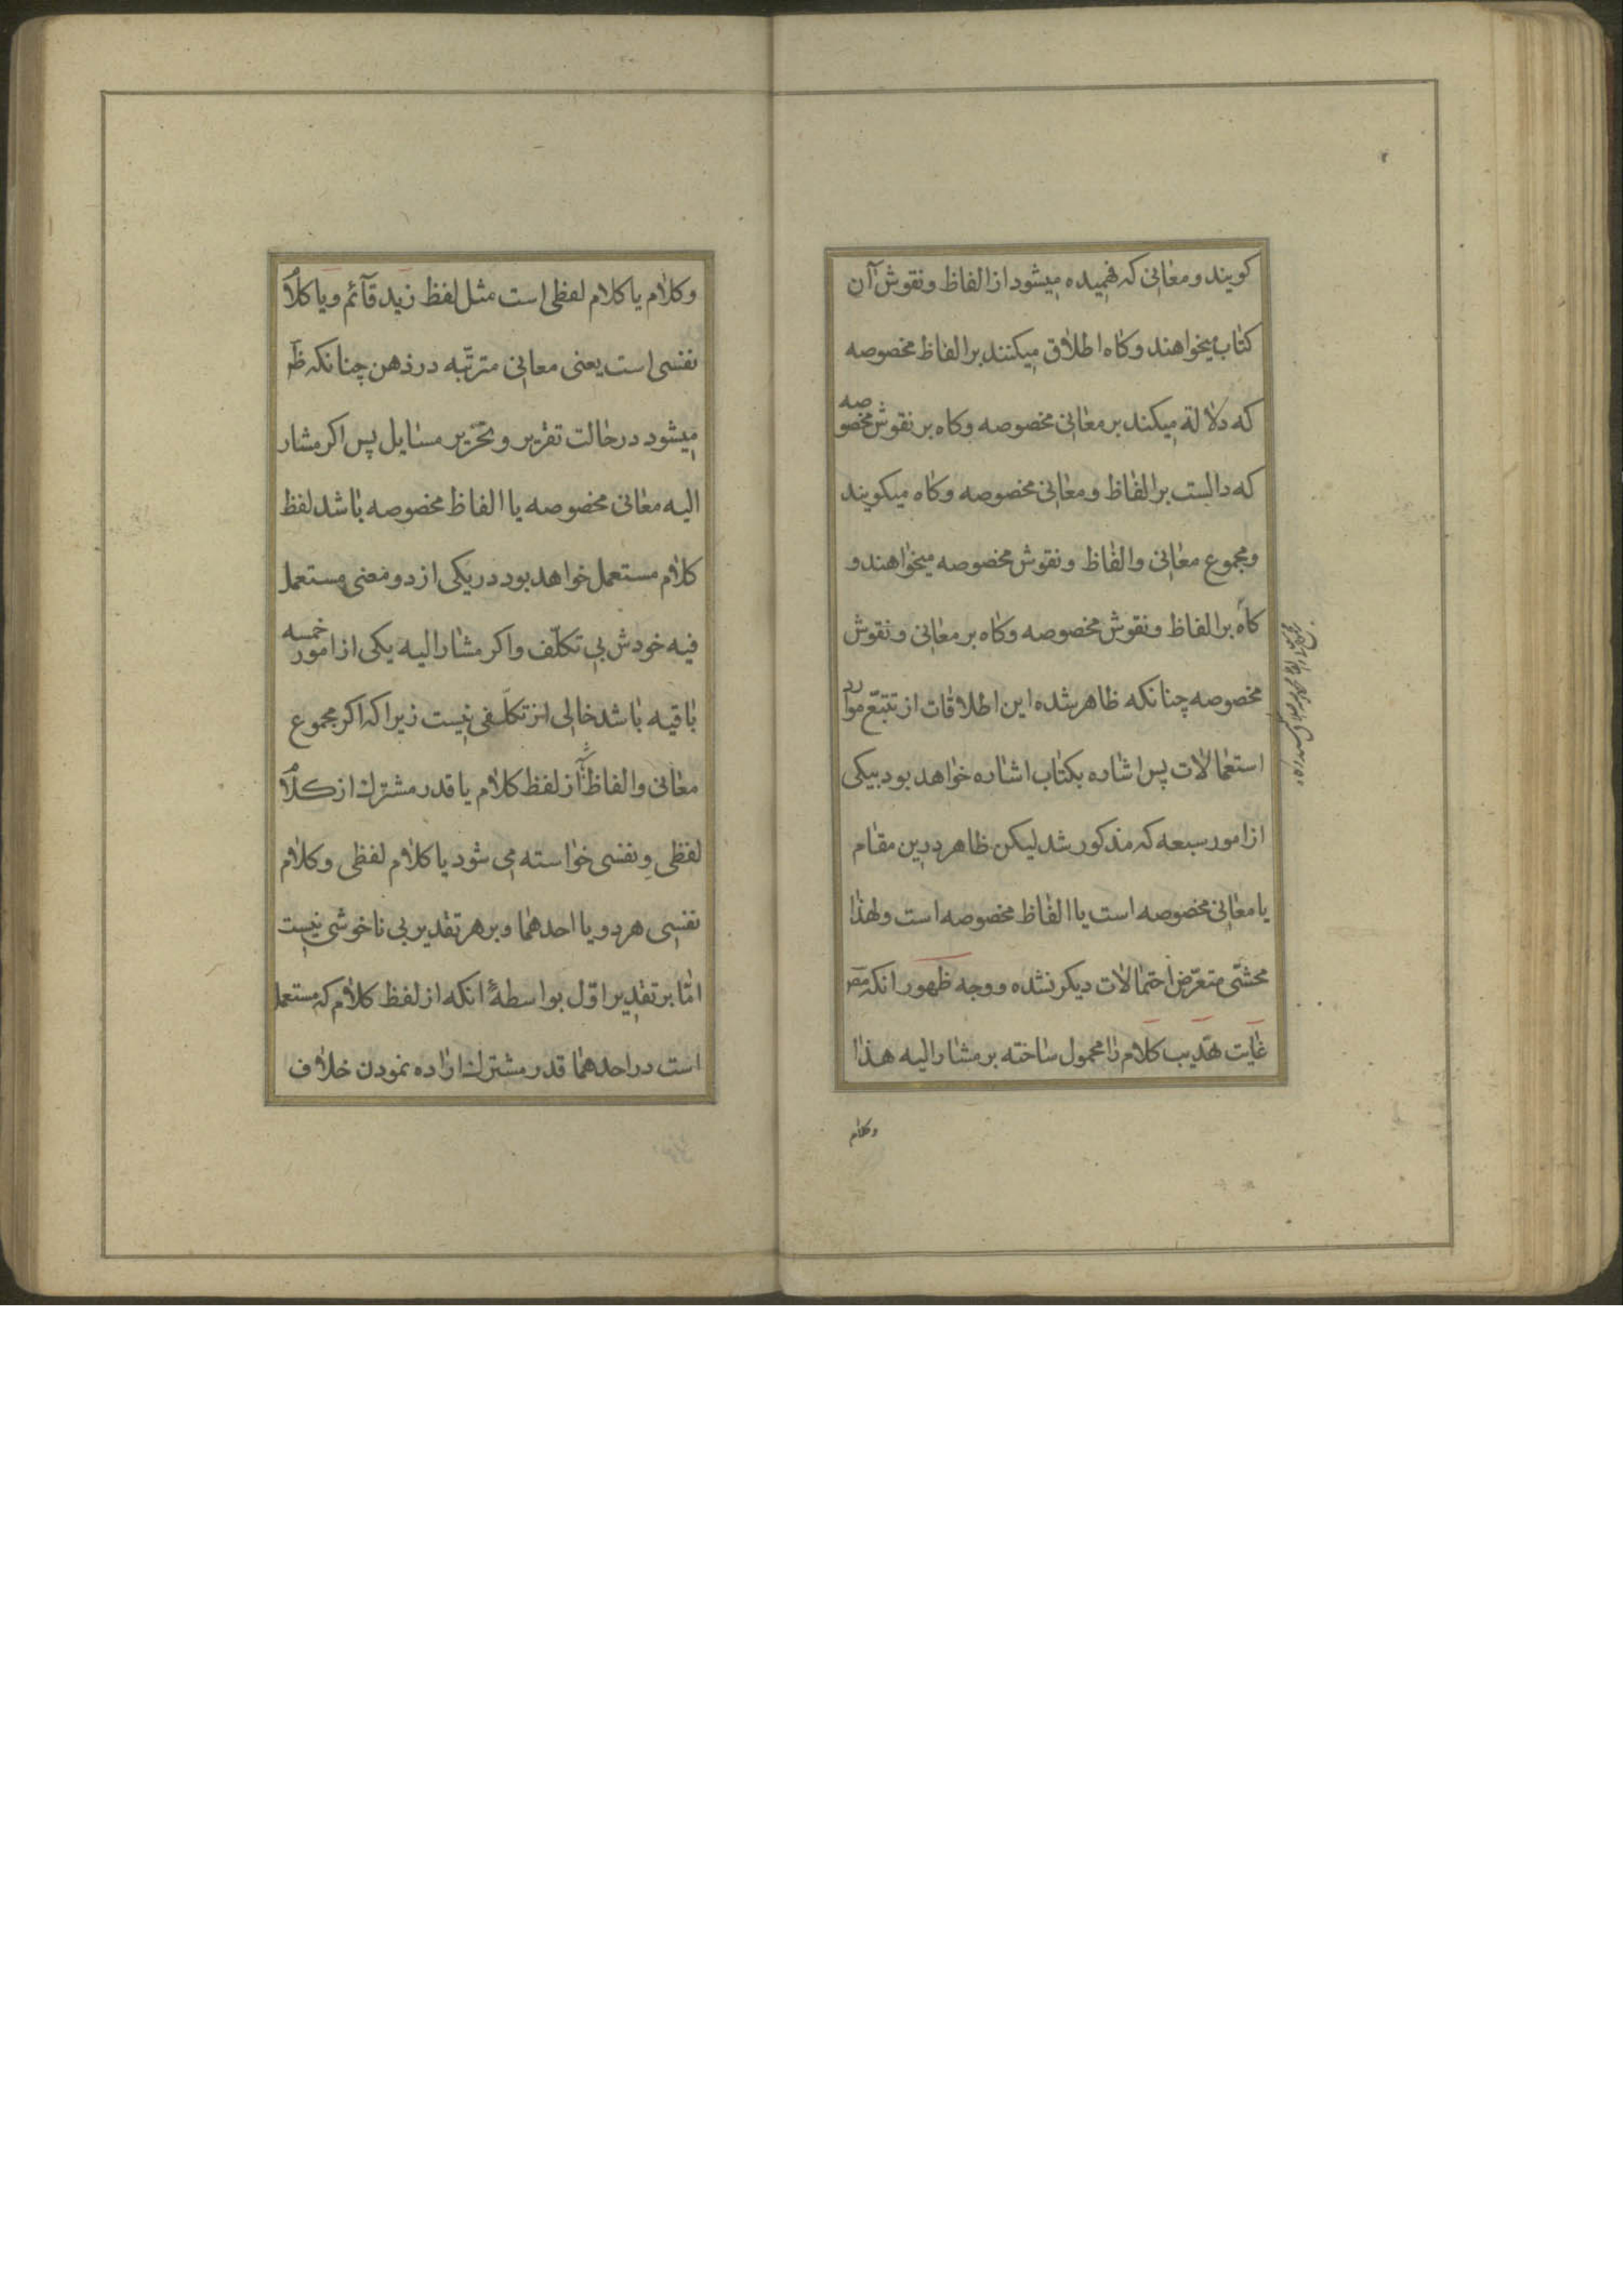 کویند و معانی که فهمیده میشود از الفاظ و نقوش آن
کتاب میخواهند و کاه اطلاق میکنند بر الفاظ مخصوصه
که دلالة میکند بر معانی مخصوصه و کاه بر نقوش مخصوصه
که دالست بر الفاظ و معانی مخصوصه و کاه میکویند
و مجموع معانی و الفاظ و نقوش مخصوصه میخواهند و
کاه بر الفاظ و نقوش مخصوصه و کاه بر معانی و نقوش
مخصوصه چنانکه ظاهر شده این اطلاقات از تتبّع موارد
استعمالات پس اشاره بکتاب اشاره خواهد بود بیکی
از امور سبعه که مذکور شد لیکن ظاهر درین مقام
یا معانی مخصوصه است یا الفاظ مخصوصه است و لهذا
محشّی متعرّض احتمالات دیکر نشده و وجه ظهور انکه مص
غایت تهذیب کلام را محمول ساخته بر مشار الیه هذا
وکلام
وکلام یا کلام لفظی است مثل لفظ زید قآئم و یا کلام
نفسی است یعنی معانی مترتّبه در ذهن چنانکه ظ
میشود در حالت تقریر و تحریر مسایل پس اکر مشار
الیه معانی مخصوصه یا الفاظ مخصوصه باشد لفظ
کلام مستعمل خواهد بود در یکی از دو معنی مستعمل
فیه خودش بی تکلّف و اکر مشار الیه یکی از امور خمسه
باقیه باشد خالی از تکلّفی نیست زیرا که اکر مجموع
معانی و الفاظ از لفظ کلام یا قدر مشترک از کلام
لفظی و نفسی خواسته می شود یا کلام لفظی و کلام
نفسی هر دو یا احدهما و بر هر تقدیر بی ناخوشی نیست
امّا بر تقدیر اوّل بواسطهٔ انکه از لفظ کلام که مستعمل
است در احدهما قدر مشترک اراده نمودن خلاف